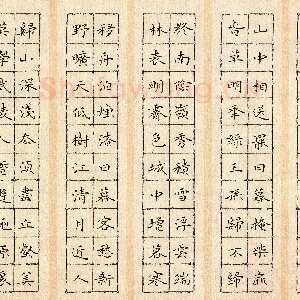 山中相送罷日暮掩柴扉
春草明年綠王孫歸不歸
終南陰嶺秀積雪浮雲端
林表明霽色城中增暮寒
移舟泊煙渚日暮客愁新
野曠天低樹江清月近人
歸山深淺去須盡丘壑美